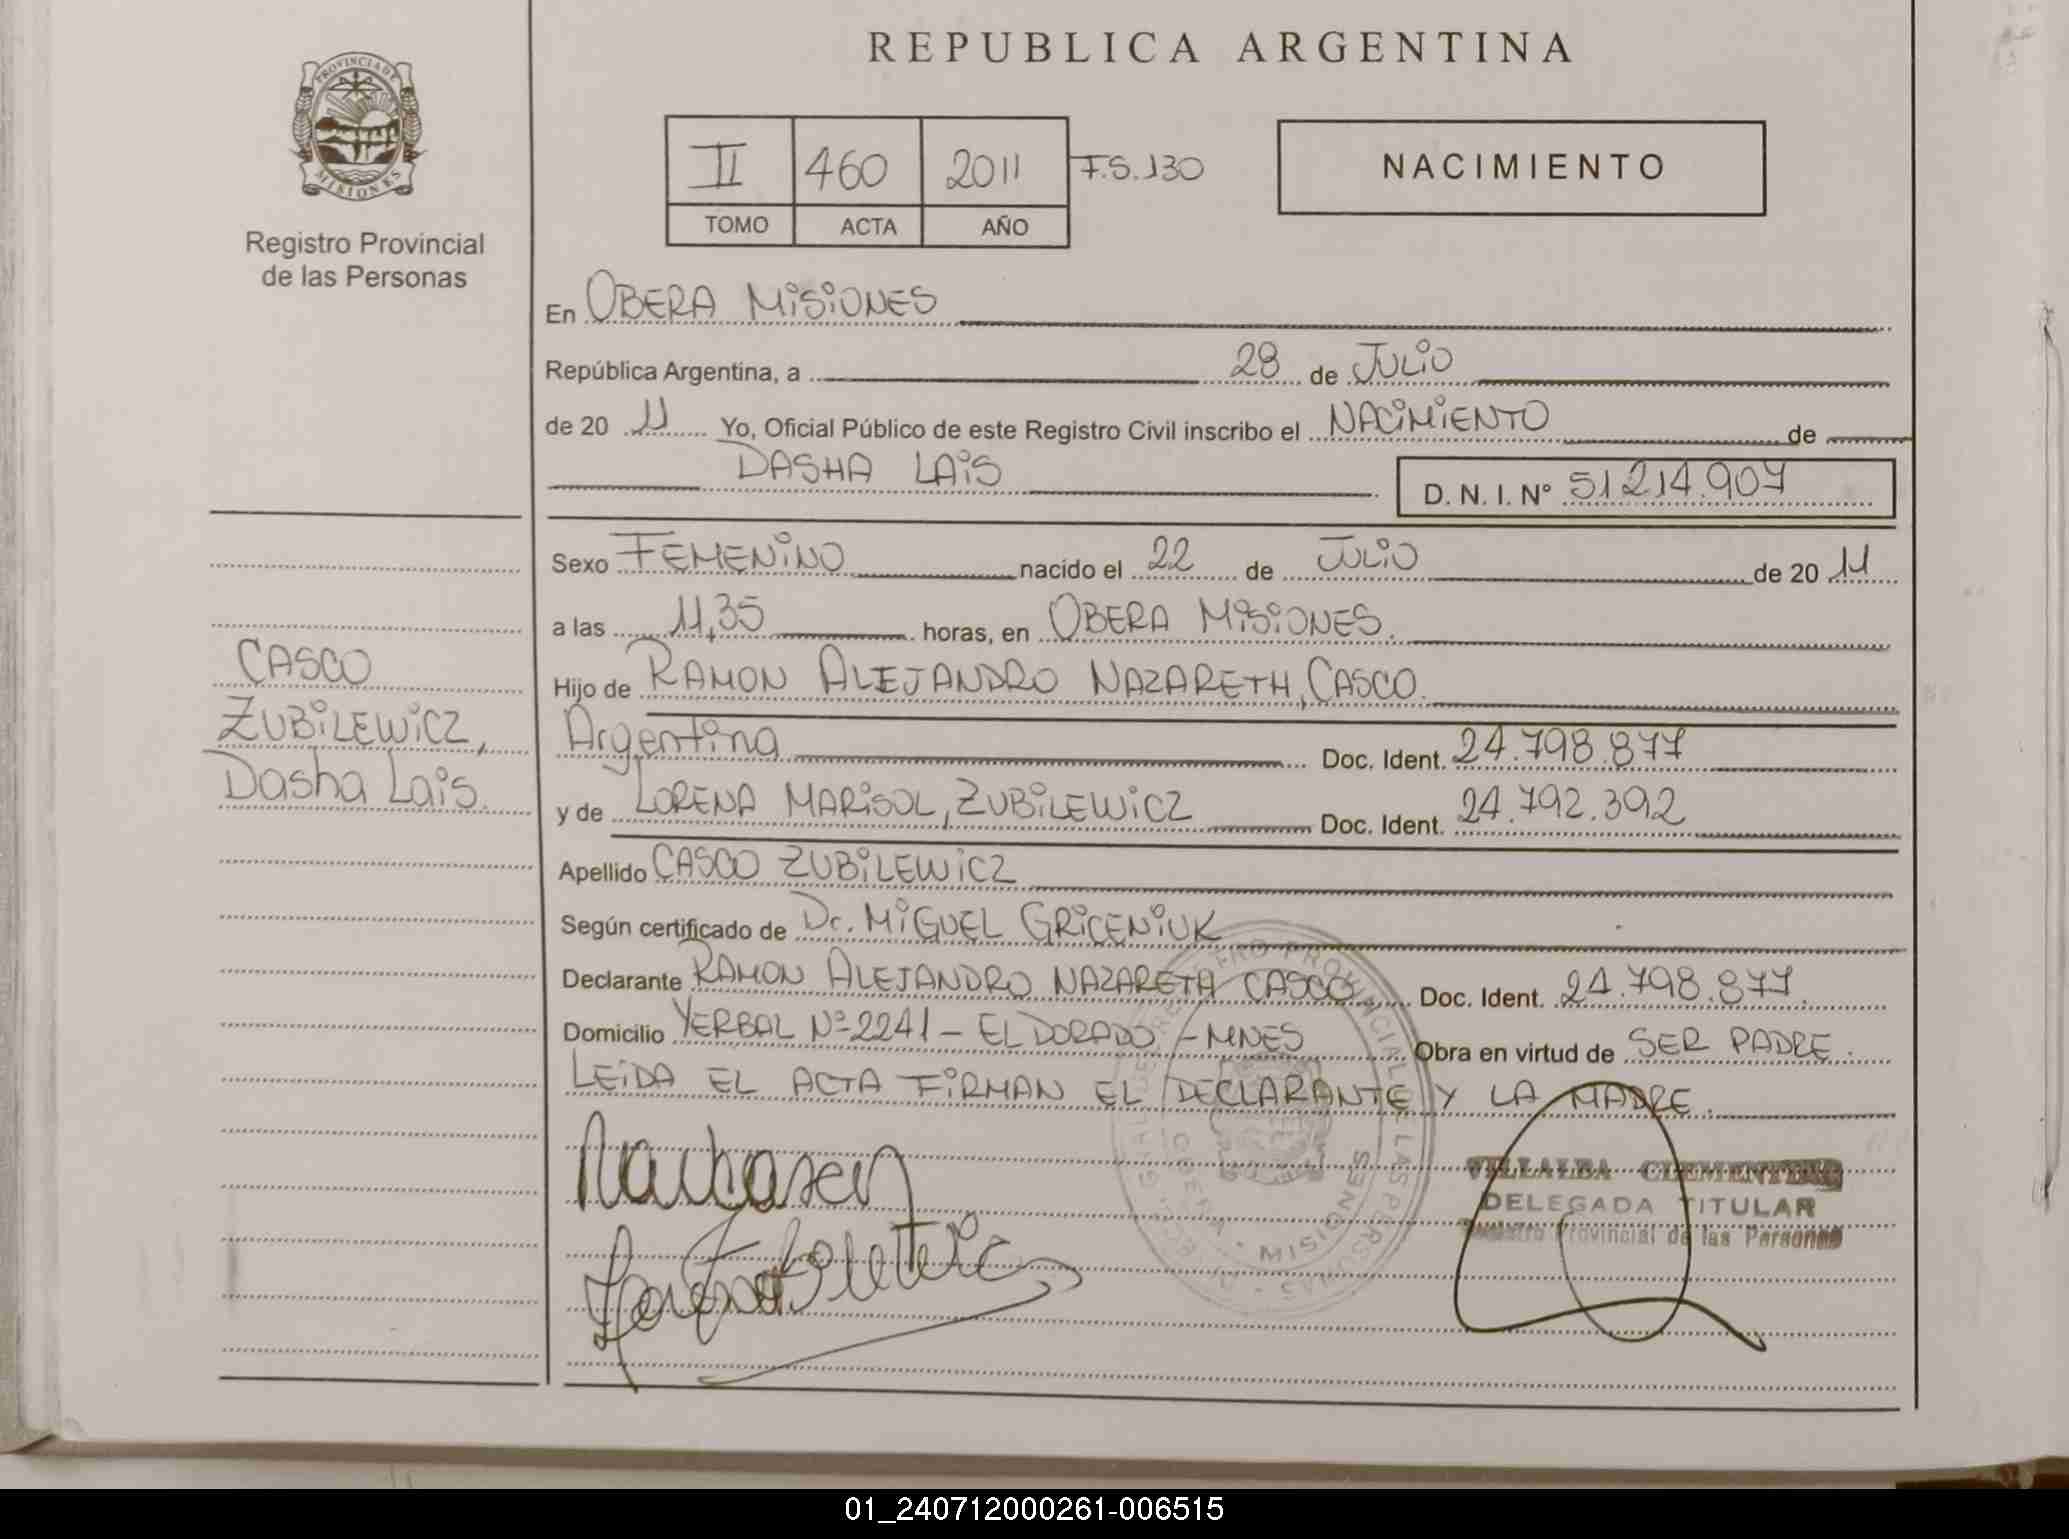 REPUBLICA ARGENTINA
PROVINCIA DE MISIONES
Registro Provincial
de las Personas
II 460 2011 F.S.130
TOMO ACTA AÑO
NACIMIENTO
En OBERA MISIONES
República Argentina, a 28 de JULIO
de 20 11 Yo, Oficial Público de este Registro Civil inscribo el NACIMIENTO de
DASHA LAIS D. N. I. Nº 51.214.907
Sexo FEMENINO nacido el 22 de JULIO de 20 11
a las 11,35 horas, en OBERA MISIONES.
Hijo de RAMON ALEJANDRO NAZARETH, CASCO.
Argentina Doc. Ident. 24.798.877
y de LORENA MARISOL, ZUBILEWICZ Doc. Ident. 24.792.392
Apellido CASCO ZUBILEWICZ
Según certificado de Dr. MIGUEL GRICENIUK
Declarante RAMON ALEJANDRO NAZARETH CASCO Doc. Ident. 24.798.877.
Domicilio YERBAL Nº 2241 - ELDORADO - MNES Obra en virtud de SER PADRE.
LEIDA EL ACTA FIRMAN EL DECLARANTE Y LA MADRE.
CASCO
ZUBILEWICZ,
Dasha Lais.
VILLALBA CLEMENTINA
DELEGADA TITULAR
Registro Provincial de las Personas
MISIONES
01_240712000261-006515